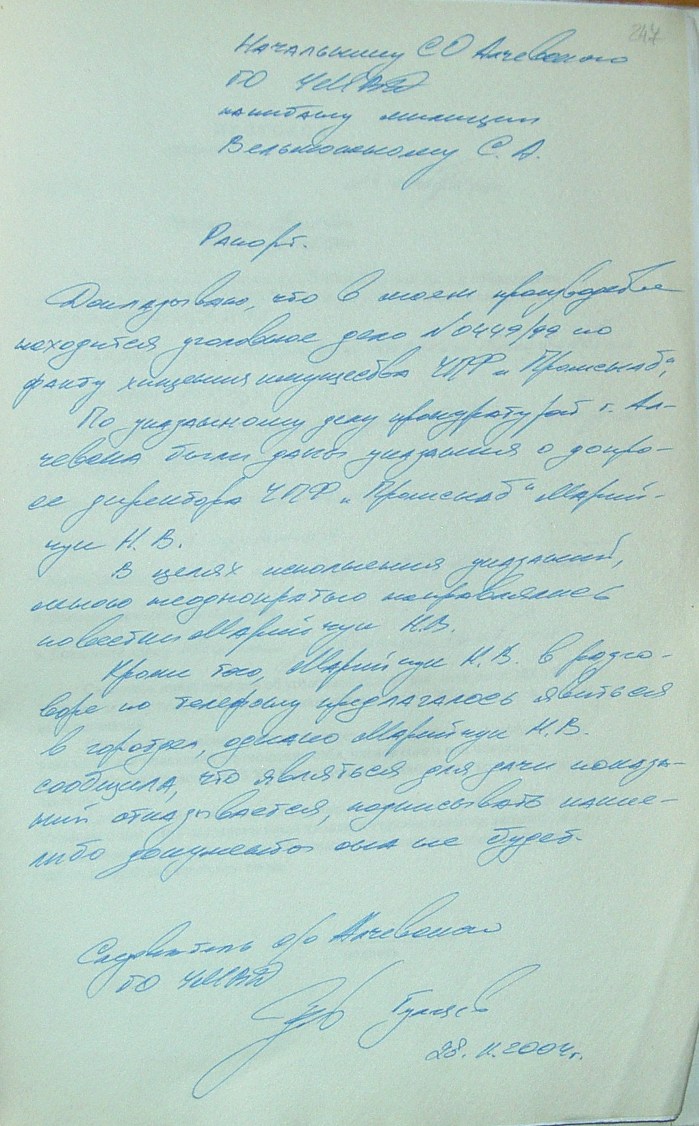 247
Начальнику СО Алчевского
ГО УМВД
капитану милиции
Вельможному С. А.
Рапорт.
Докладываю, что в моем производстве
находится уголовное дело № 0449/99 по
факту хищения имущества ЧПФ „Промснаб",
По указанному делу прокуратурой г. Ал-
чевска были даны указания о допро-
се директора ЧПФ „Промснаб" Марий-
чук Н. В.
В целях исполнения указаний,
мною неоднократно направлялись
повестки Марийчук Н.В.
Кроме того, Марийчук Н. В. в разго-
воре по телефону предлагалось явиться
в горотдел, однако Марийчук Н. В.
сообщила, что являться для дачи показа-
ний отказывается, подписывать какие-
либо документы она не будет.
Следователь с/о Алчевского
ГО УМВД
28. 2004г.